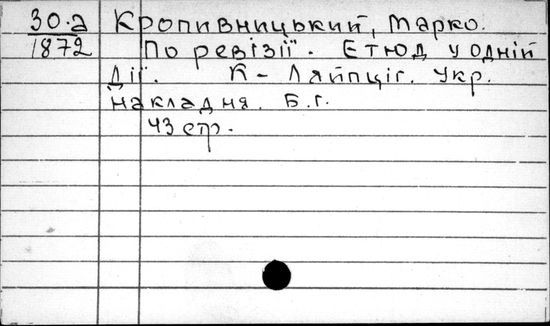 30.а Кропивницький, Марко.
1872 По ревізії. Етюд у одній
Дії. К - Ляйпціг. Укр.
накладня. Б.г.
43 стр.